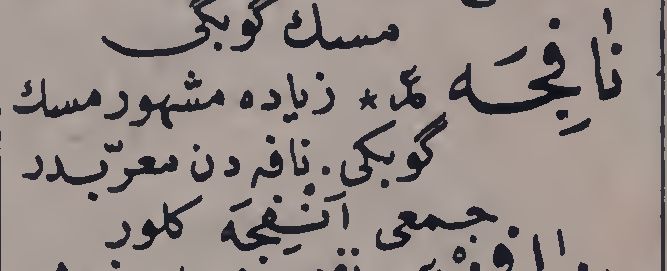 مسك گوبكی
نَافِجَه مّـ * زیاده مشهور مسك
گوبكی. نافه دن معرّبدر
جمعی اَنْفِجَه كلور